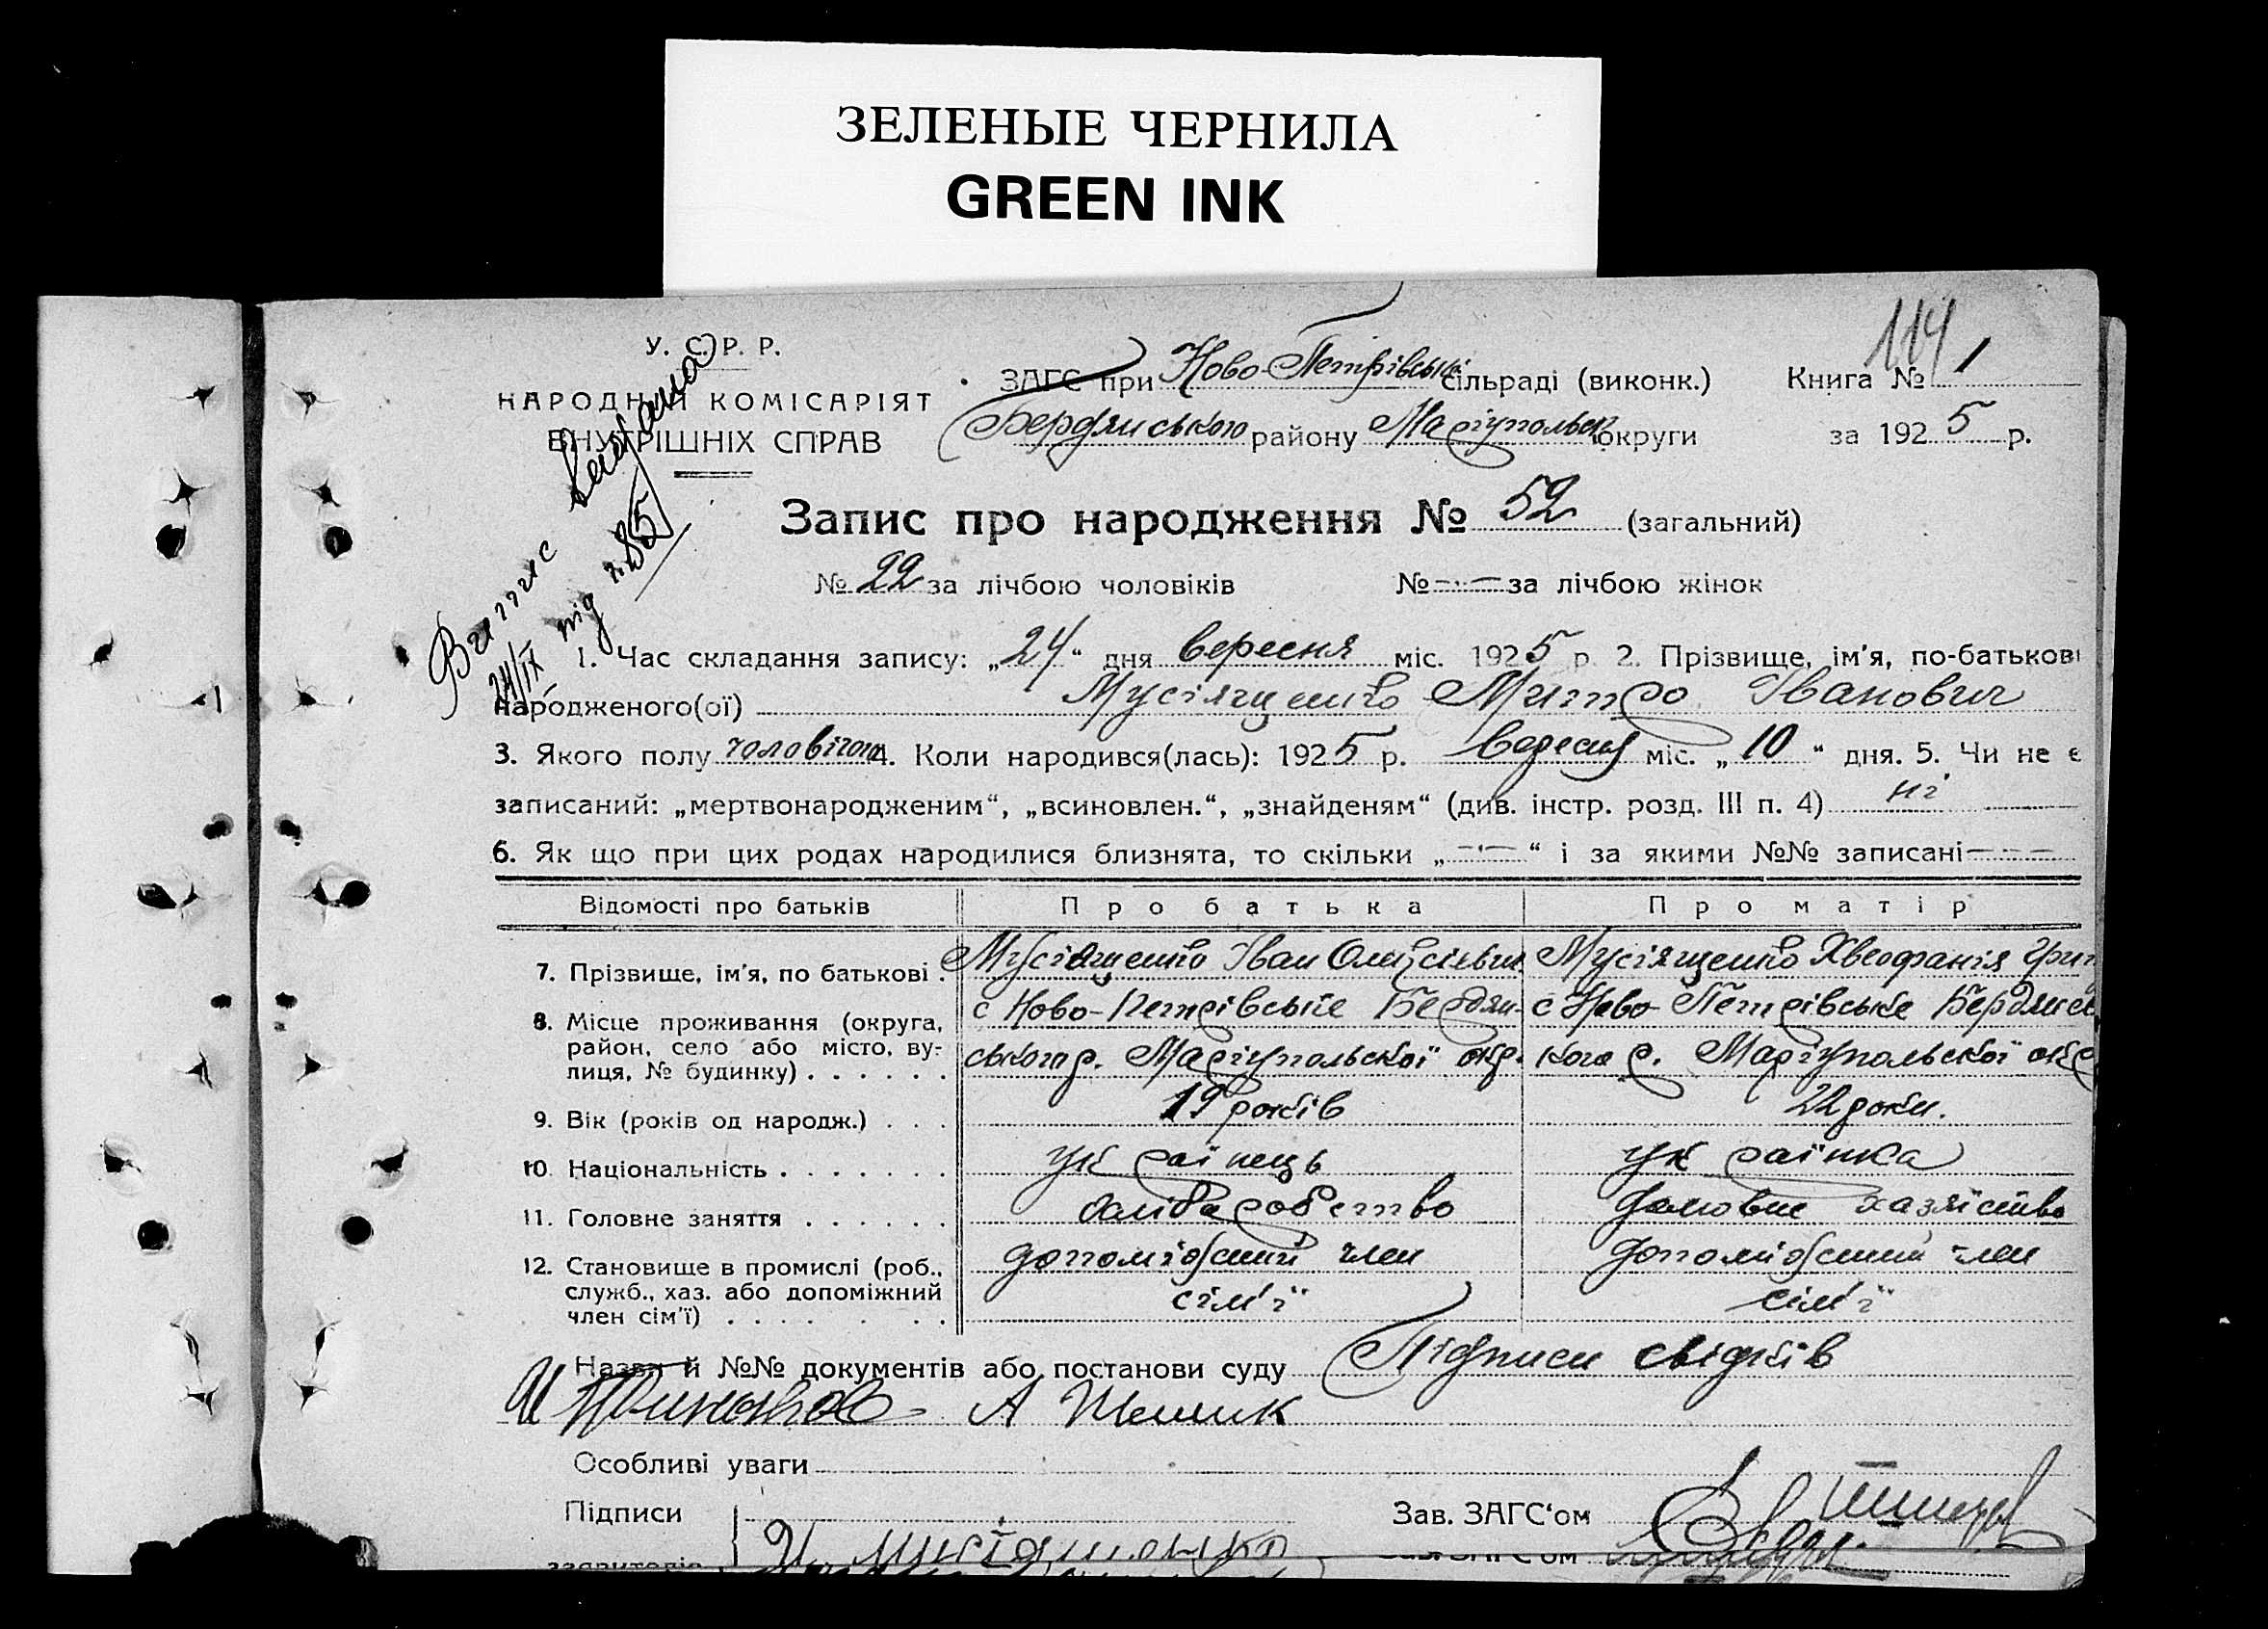 ЗЕЛЕНЫЕ ЧЕРНИЛА
GREEN INK
114
У. С. Р. Р.
НАРОДНИЙ КОМІСАРІЯТ
ВНУТРІШНІХ СПРАВ
ЗАГС при Ново-Петрівській сільраді (виконк.)
Бердянського району Маріупольск округи
Книга № 1
за 1925 р.
24/IX під 85
Запис про народження № 52 (загальний)
№ 22 за лічбою чоловіків № — за лічбою жінок
1. Час складання запису: „24“ дня вересня міс. 1925 р. 2. Прізвище, ім'я, по-батькові
народженого(ої) Мусіященко Митро Іванович
3. Якого полу чоловічого 4. Коли народився(лась): 1925 р. вересня міс. „10“ дня. 5. Чи не є
записаний: „мертвонародженим“, „всиновлен.“, „знайденям“ (див. інстр. розд. III п. 4) ні
6. Як що при цих родах народилися близнята, то скільки „—“ і за якими №№ записані —
Відомості про батьків Про батька Про матір
7. Прізвище, ім'я, по батькові . Мусіященко Іван Олексієвич Мусіященко Хвеофанія Григ
8. Місце проживання (округа, район, село або місто, вулиця, № будинку) . . . . . .
с Ново-Петрівське Бердян-
ського р. Маріупольскої окр.
с Ново-Петрівське Бердянсь
кого р. Маріупольскої окр
9. Вік (років од народж.) . . . 19 років 22 роки.
10. Національність . . . . . . . українець українка
11. Головне заняття . . . . . . хліборобство домовне хазяіство
12. Становище в промислі (роб., служб., хаз. або допоміжний член сім'ї) . . . .
допоміжний член
сім'ї
допоміжний член
сім'ї
Назва й №№ документів або постанови суду Підписи свідків
А Шешик
Особливі уваги
Підписи Зав. ЗАГС'ом
заявителів И. Мусіященко Зав. ЗАГС'ом